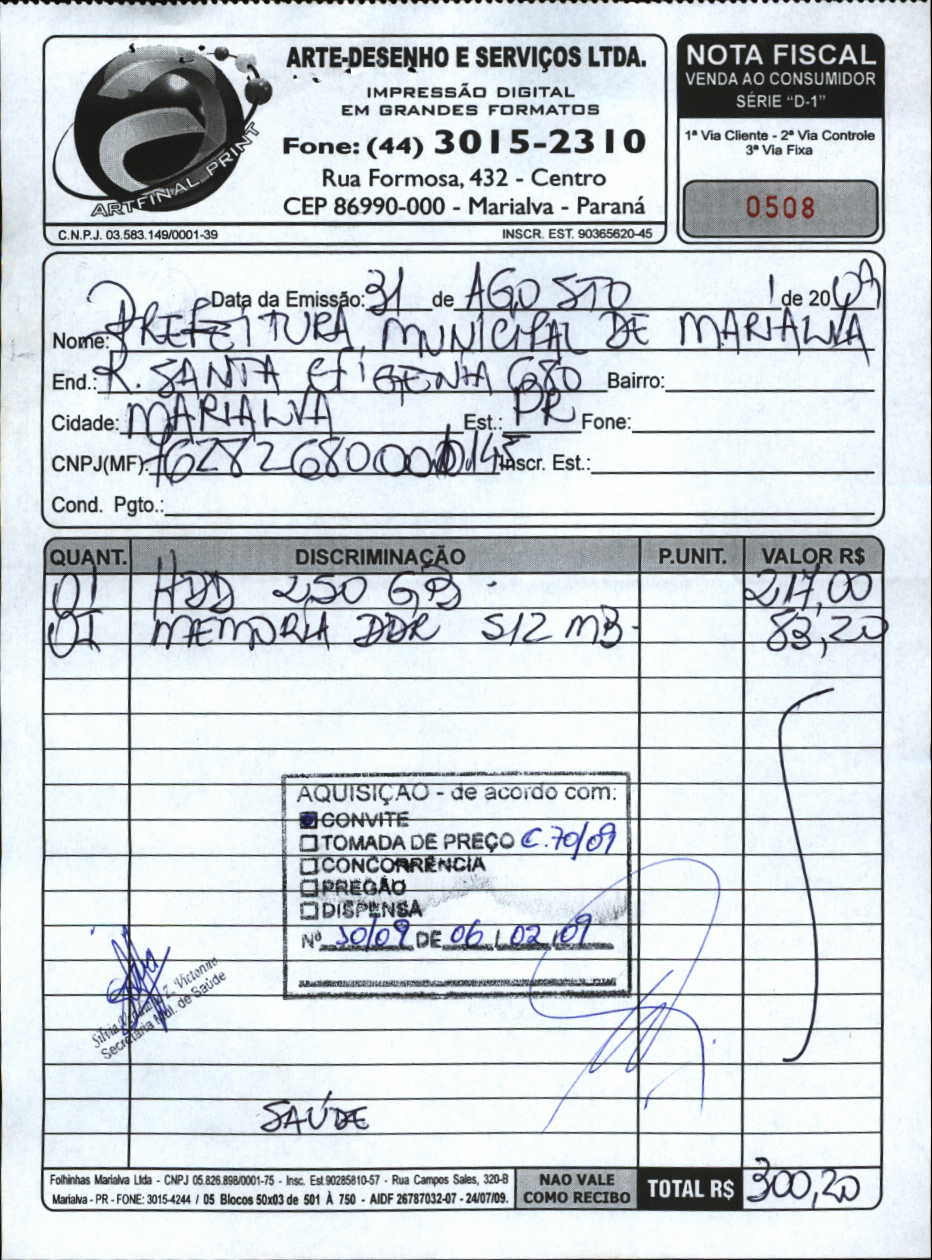 ARTFINAL PRINT
ARTE-DESENHO E SERVIÇOS LTDA.
IMPRESSÃO DIGITAL
EM GRANDES FORMATOS
Fone: (44) 3015-2310
Rua Formosa, 432 - Centro
CEP 86990-000 - Marialva - Paraná
C.N.P.J. 03.583.149/0001-39 INSCR. EST. 90365620-45
NOTA FISCAL
VENDA AO CONSUMIDOR
SÉRIE "D-1"
1ª Via Cliente - 2ª Via Controle
3ª Via Fixa
0508
Data da Emissão: 31 de AGOSTO de 2009
Nome: PREFEITURA MUNICIPAL DE MARIALVA
End.: R. SANTA EFIGENIA 680 Bairro:
Cidade: MARIALVA Est.: PR Fone:
CNPJ(MF): Inscr. Est.:
Cond. Pgto.:
QUANT. DISCRIMINAÇÃO P.UNIT. VALOR R$
01 HDD 250 GB - 217,00
01 MEMORIA DDR 512 MB - 83,20
AQUISIÇÃO - de acordo com:
CONVITE
TOMADA DE PREÇO C.70/09
CONCORRÊNCIA
PREGÃO
DISPENSA
Nº 10/09 DE 06 / 02 / 09
Silvia Z. Victorino
Secretária Mul. de Saúde
SAÚDE
Folhinhas Marialva Ltda - CNPJ 05.826.898/0001-75 - Insc. Est.90285810-57 - Rua Campos Sales, 320-B
Marialva - PR - FONE: 3015-4244 / 05 Blocos 50x03 de 501 À 750 - AIDF 26787032-07 - 24/07/09.
NAO VALE
COMO RECIBO
TOTAL R$ 300,20